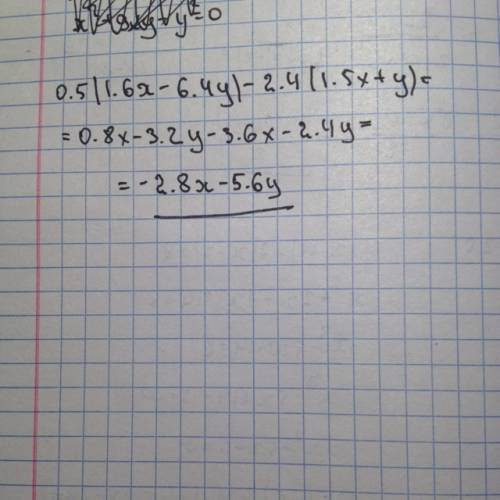 y²=0
0.5(1.6x-6.4y)-2.4(1.5x+y)=
=0.8x-3.2y-3.6x-2.4y=
=-2.8x-5.6y